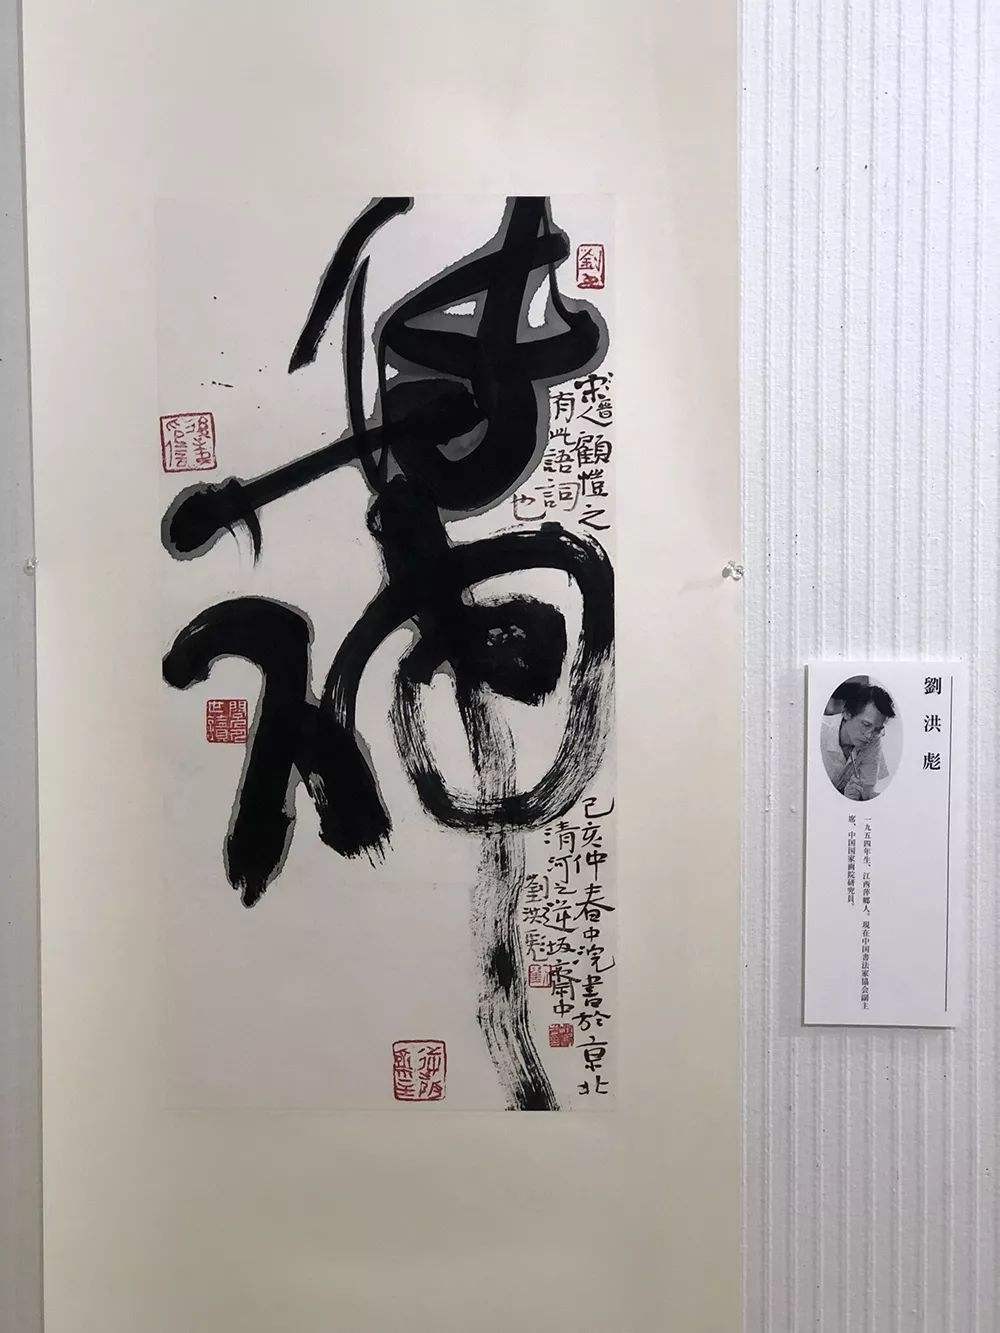 傳神
顧愷之
有此語詞
也
己亥仲春中浣書於京北
清河之逆坂齋中
劉洪彪
劉洪彪
一九五四年生，江西萍鄉人。現在中国書法家協会副主
席、中国国家画院研究員。